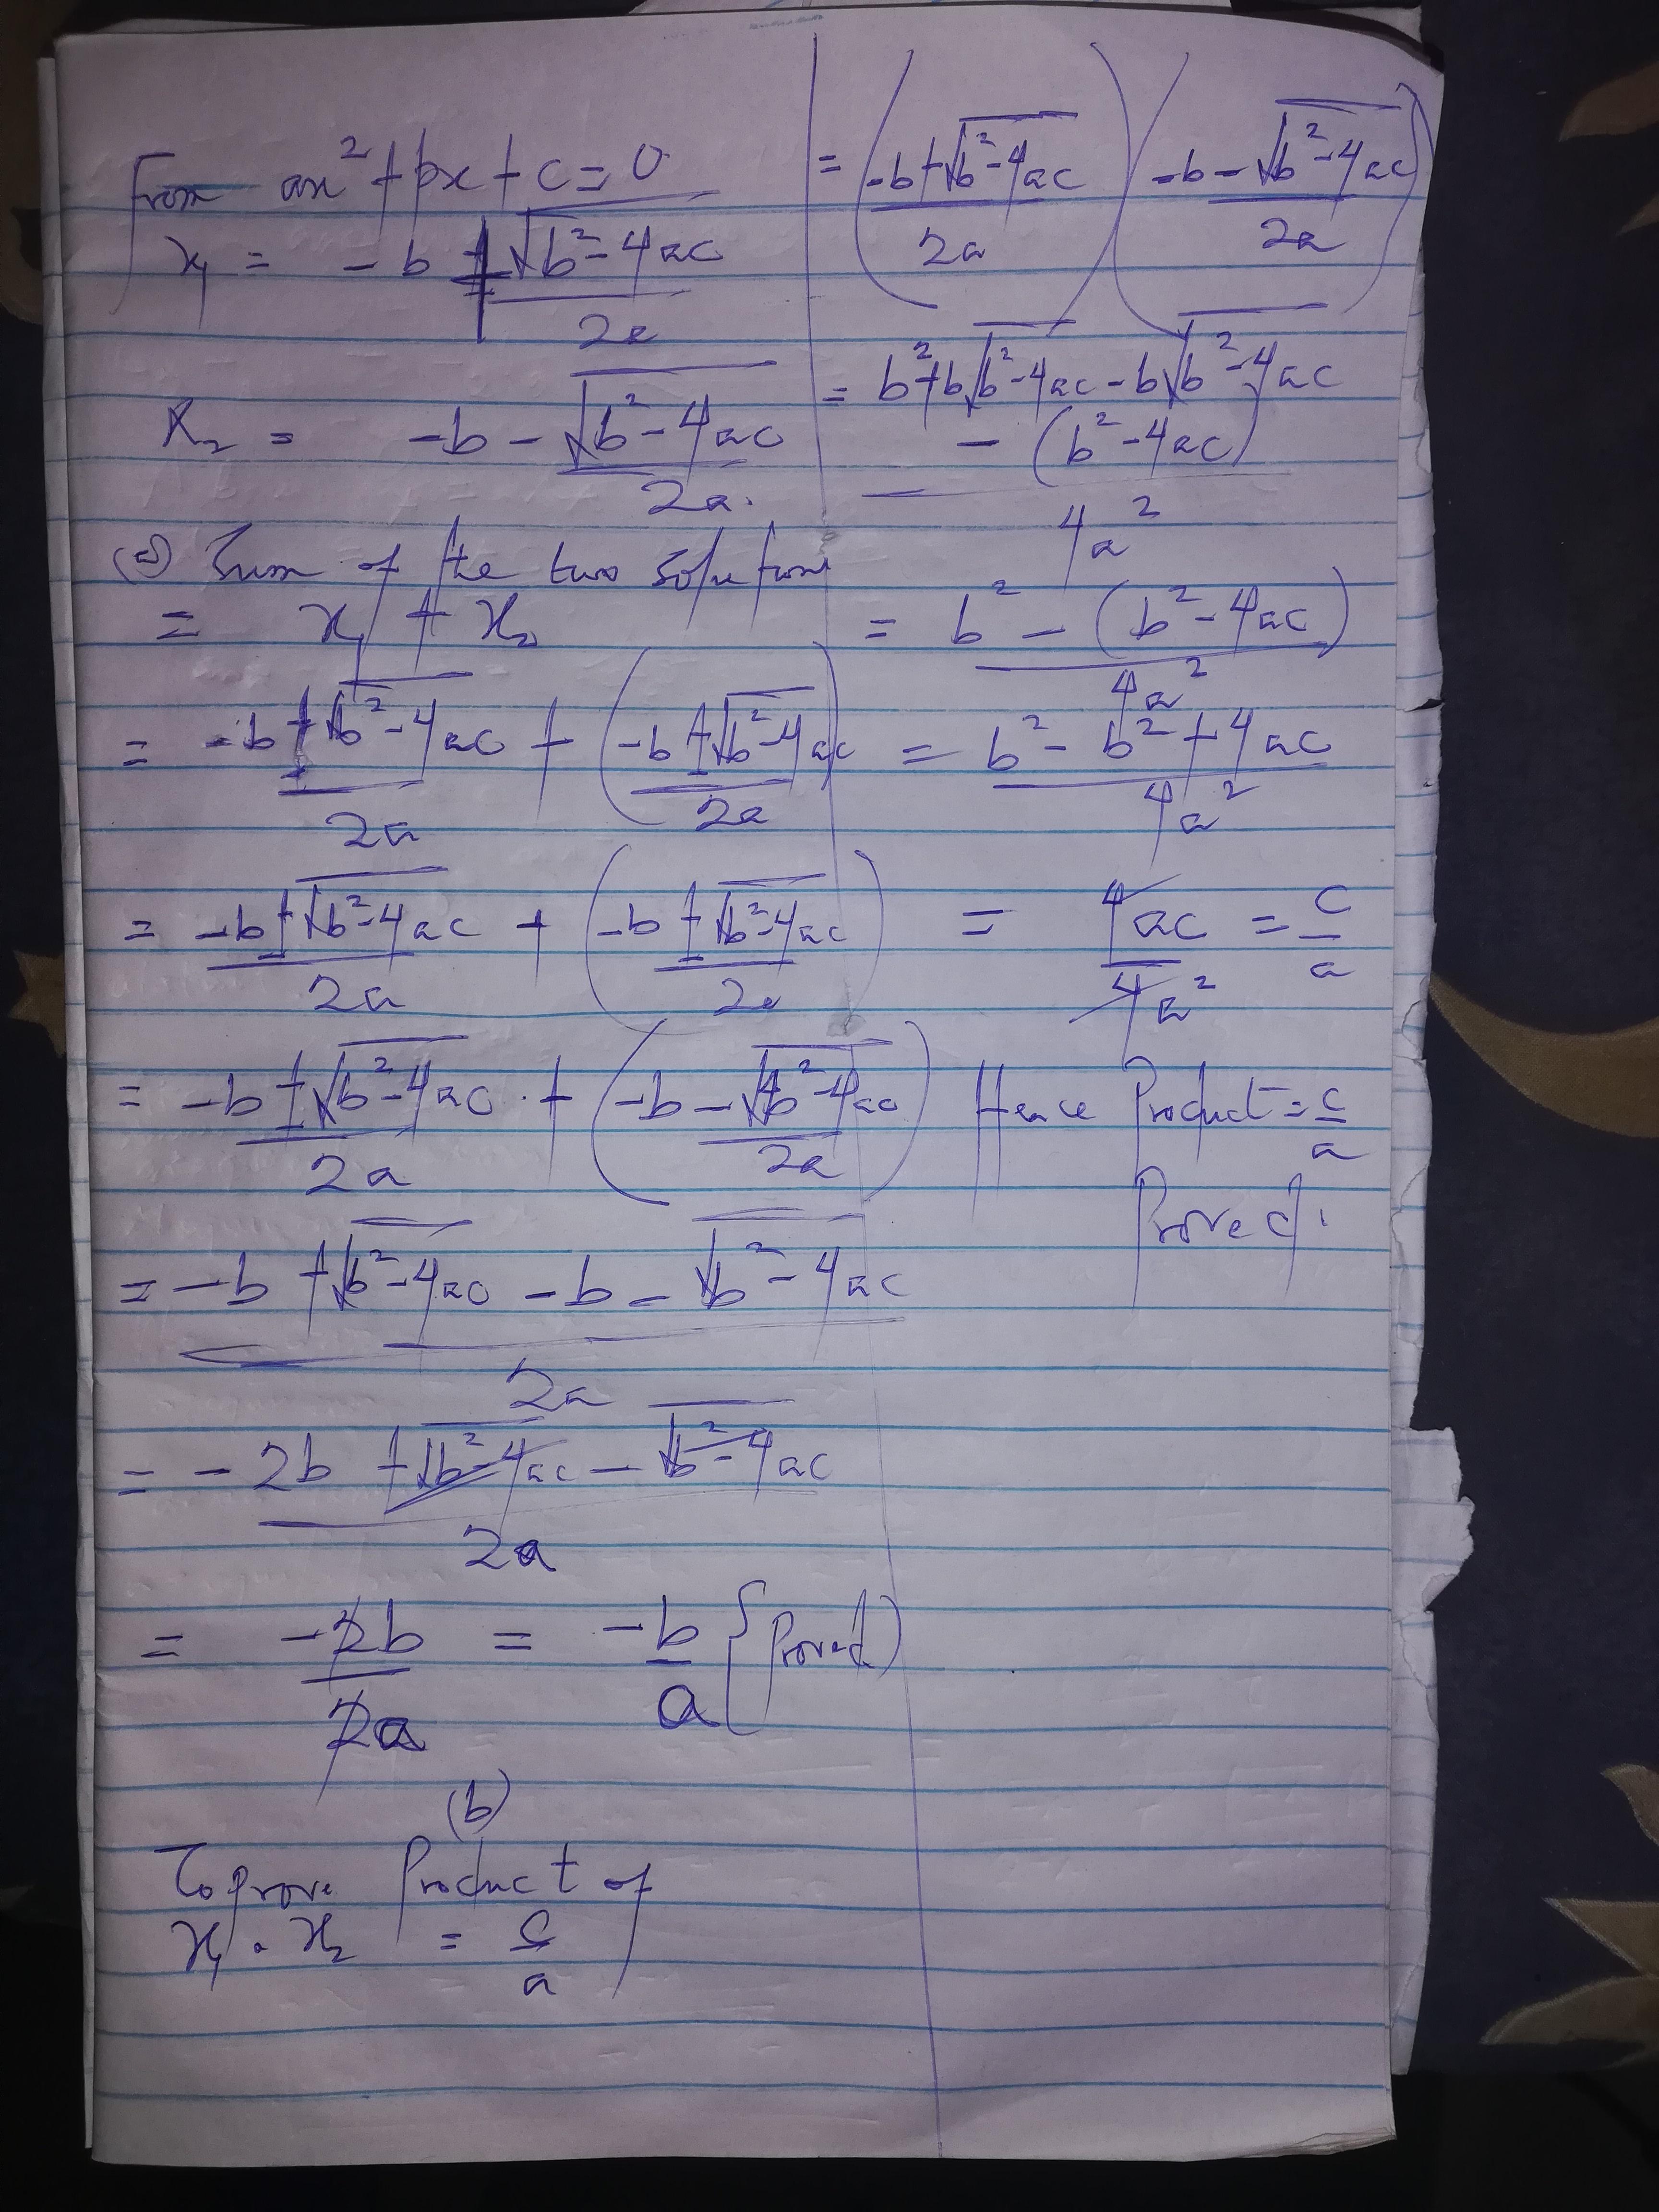 From ax² + bx + c = 0
x₁ = -b ± √(b² - 4ac) / 2a
x₂ = -b - √(b² - 4ac) / 2a.
(a) Sum of the two solutions
= x₁ + x₂
= -b ± √(b² - 4ac) / 2a + (-b ± √(b² - 4ac) / 2a)
= -b ± √(b² - 4ac) / 2a + (-b ± √(b² - 4ac) / 2a)
= -b ± √(b² - 4ac) / 2a + (-b - √(b² - 4ac) / 2a)
= -b + √(b² - 4ac) - b - √(b² - 4ac) / 2a
= -2b + √(b² - 4ac) - √(b² - 4ac) / 2a
= -2b / 2a = -b / a {Proved)
(b)
To prove Product of
x₁ . x₂ = c / a
= (-b + √(b² - 4ac) / 2a) (-b - √(b² - 4ac) / 2a)
= b² + b√(b² - 4ac) - b√(b² - 4ac)
- (b² - 4ac)
4a²
= b² - (b² - 4ac) / 4a²
= b² - b² + 4ac / 4a²
= 4ac / 4a² = c / a
Hence Product = c / a
Proved.